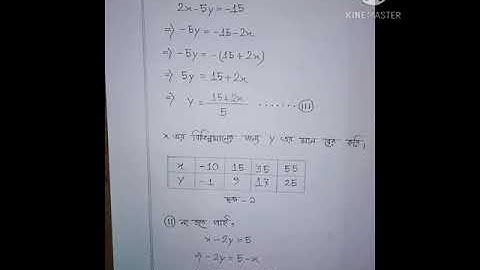 KINEMASTER
2x-5y=-15
⇒ -5y=-15-2x
⇒ -5y=-(15+2x)
⇒ 5y=15+2x
⇒ y=15+2x/5 ........ (III)
x এর বিভিন্নমানের জন্য y এর মান বের করি।
x -10 15 35 55
y -1 9 17 25
ছক-2
(II) নং হতে পাই,
x-2y=5
⇒ -2y=5-x